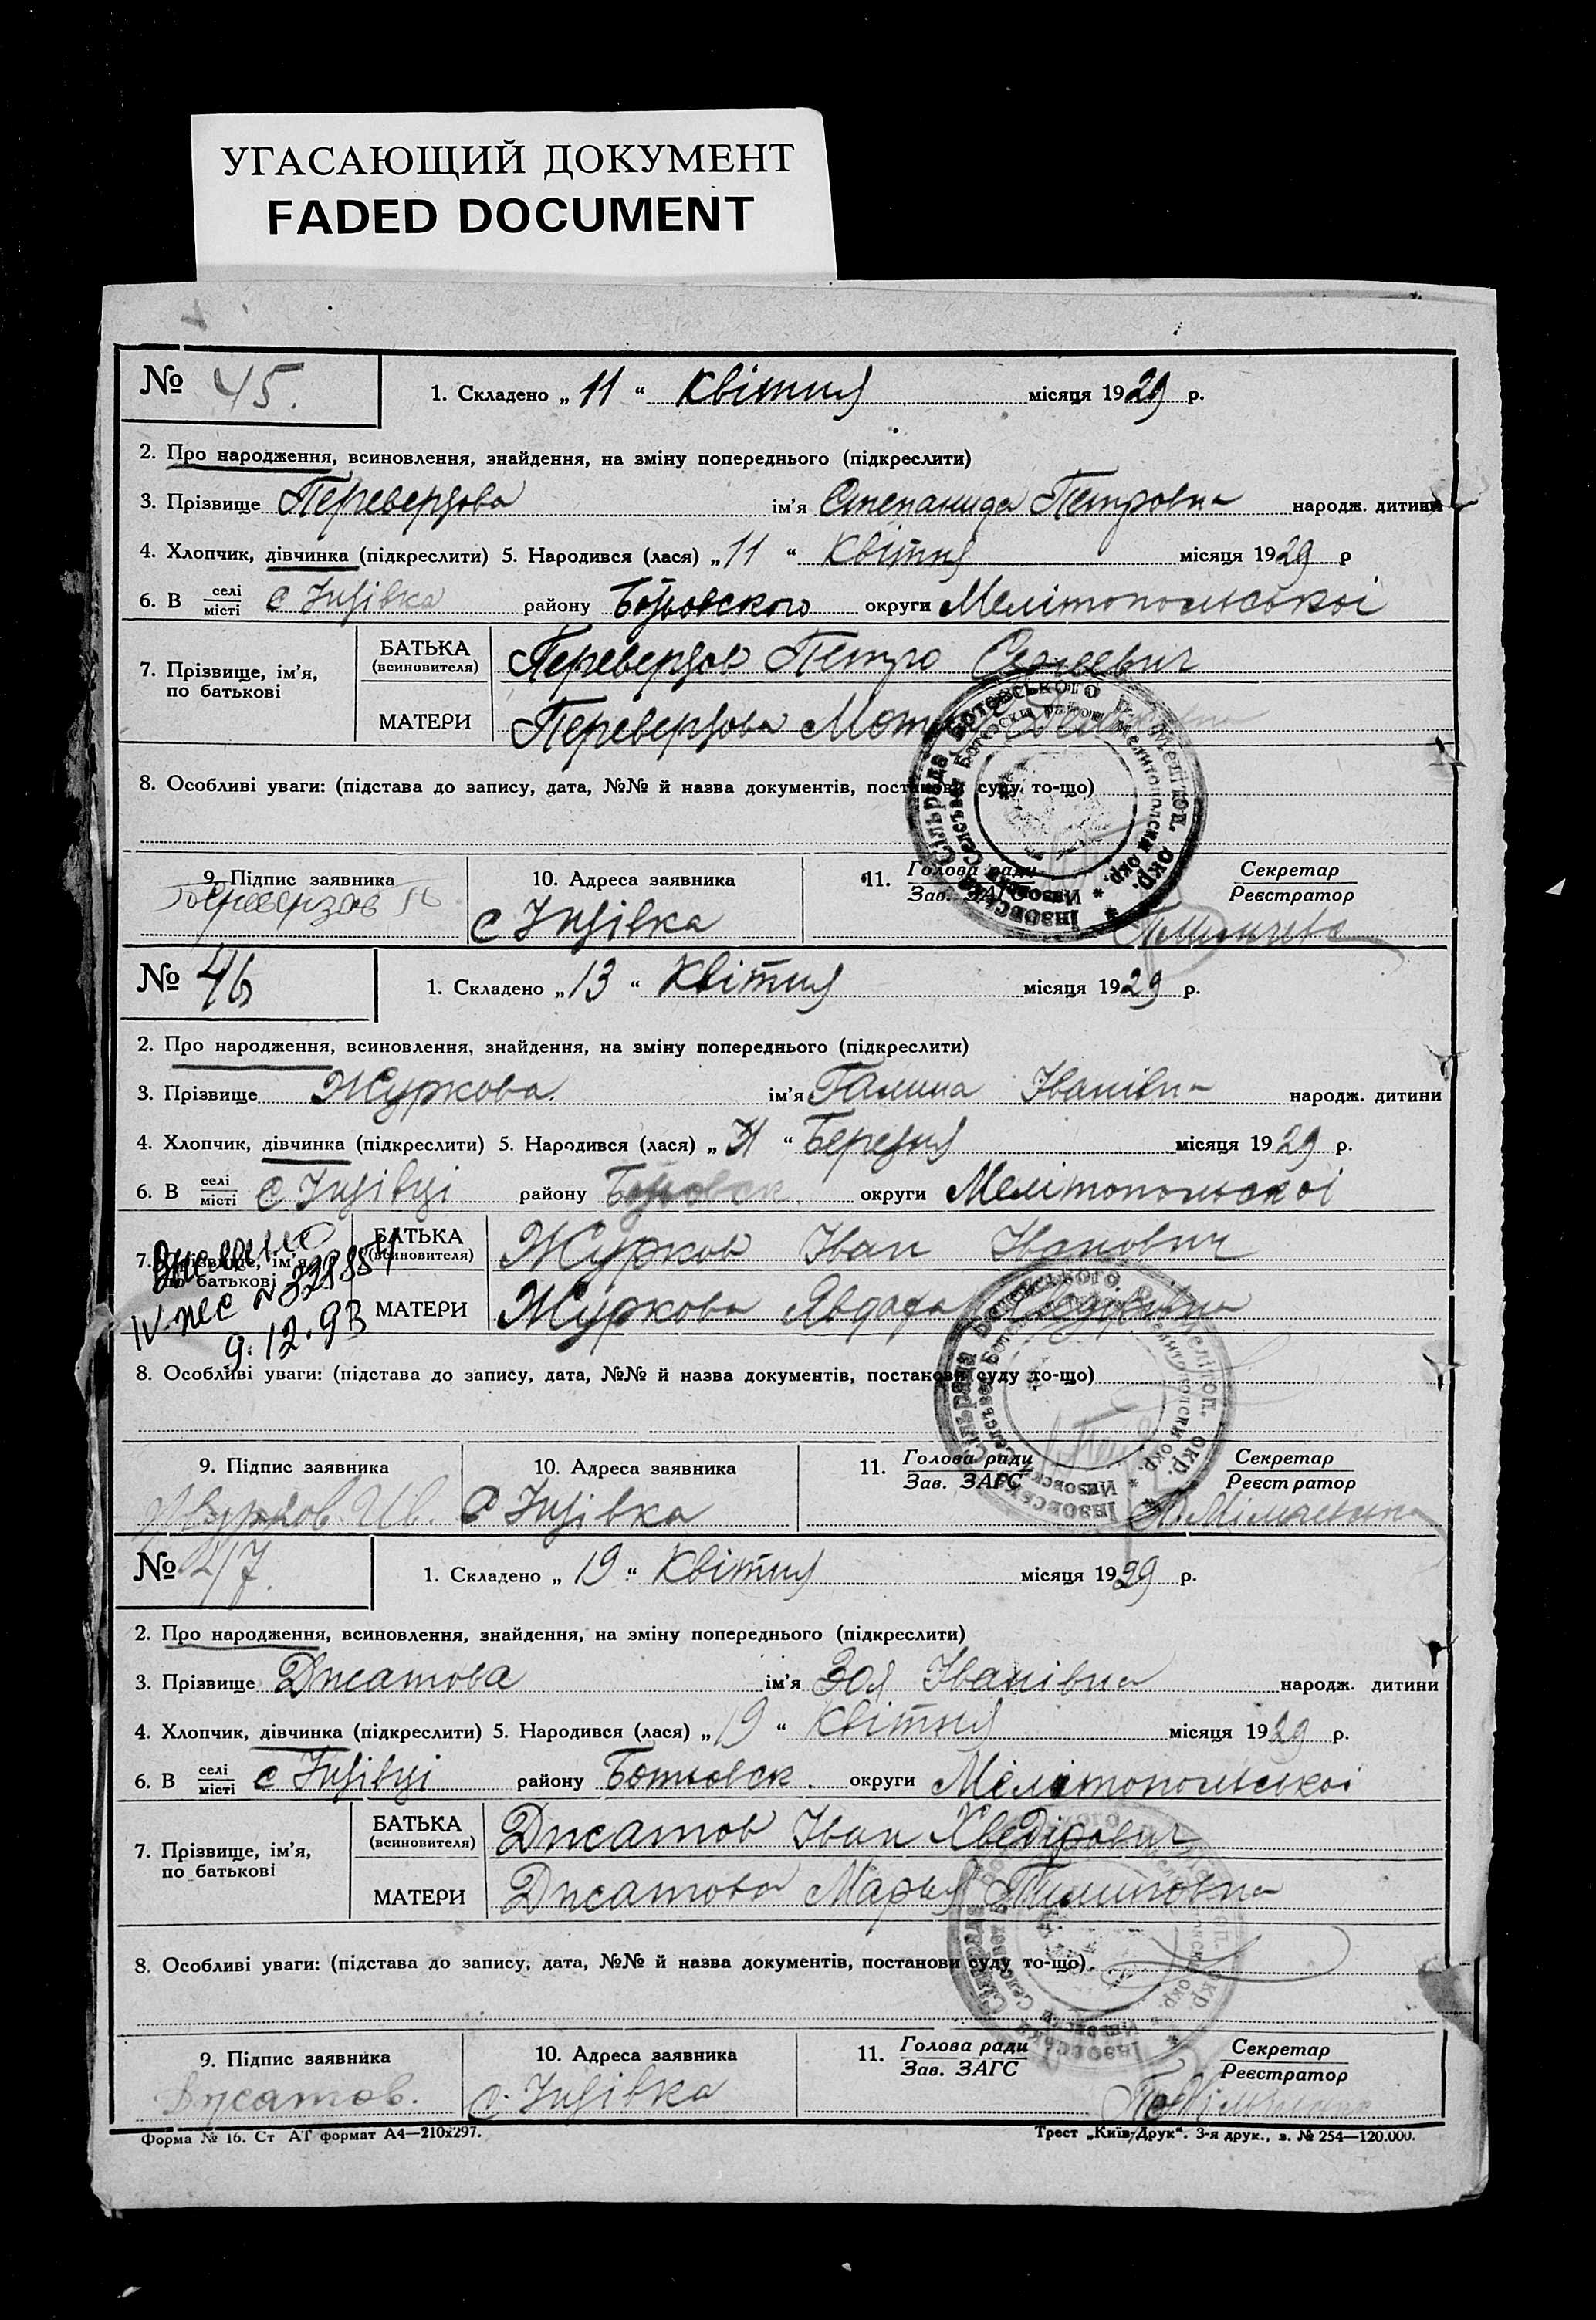 УГАСАЮЩИЙ ДОКУМЕНТ
FADED DOCUMENT
№ 45.
1. Складено „ 11 “ Квітня місяця 1929 р.
2. Про народження, всиновлення, знайдення, на зміну попереднього (підкреслити)
3. Прізвище Переверзова ім’я Степанида Петровна народж. дитини
4. Хлопчик, дівчинка (підкреслити) 5. Народився (лася) „ 11 “ Квітня місяця 1929 р
6. В селі/місті с Інзівка району Ботьовского округи Мелітопольської
7. Прізвище, ім’я, по батькові
БАТЬКА (всиновителя) Переверзов Петро
МАТЕРИ Переверзова
8. Особливі уваги: (підстава до запису, дата, №№ й назва документів, постанови суду то-що)
9. Підпис заявника 10. Адреса заявника 11. Голова ради/Зав. ЗАГС Секретар/Реєстратор
Переверзов П с Інзівка
№ 46
1. Складено „ 13 “ Квітня місяця 1929 р.
2. Про народження, всиновлення, знайдення, на зміну попереднього (підкреслити)
3. Прізвище Журкова ім’я Галина Іванівна народж. дитини
4. Хлопчик, дівчинка (підкреслити) 5. Народився (лася) „ 31 “ Березня місяця 1929 р.
6. В селі/місті с Інзівці району Ботьовск округи Мелітопольскої
7. Прізвище, ім’я, по батькові
9.12.93
БАТЬКА (всиновителя) Журков Іван Іванович
МАТЕРИ Журкова Явдоха
8. Особливі уваги: (підстава до запису, дата, №№ й назва документів, постанови суду то-що)
9. Підпис заявника 10. Адреса заявника 11. Голова ради/Зав. ЗАГС Секретар/Реєстратор
Журков Ив. с Інзівка
№ 47.
1. Складено „ 19 “ Квітня місяця 1929 р.
2. Про народження, всиновлення, знайдення, на зміну попереднього (підкреслити)
3. Прізвище Джатова ім’я Зоя Іванівна народж. дитини
4. Хлопчик, дівчинка (підкреслити) 5. Народився (лася) „ 19 “ Квітня місяця 1929 р.
6. В селі/місті с Інзівці району Ботьовск. округи Мелітопольської
7. Прізвище, ім’я, по батькові
БАТЬКА (всиновителя) Джатов Іван Хведірович
МАТЕРИ Джатова Марья
8. Особливі уваги: (підстава до запису, дата, №№ й назва документів, постанови суду то-що)
9. Підпис заявника 10. Адреса заявника 11. Голова ради/Зав. ЗАГС Секретар/Реєстратор
Джатов. с. Інзівка
Форма № 16. Ст АТ формат А4—210х297. Трест „Київ-Друк“. 3-я друк., з. № 254—120.000.